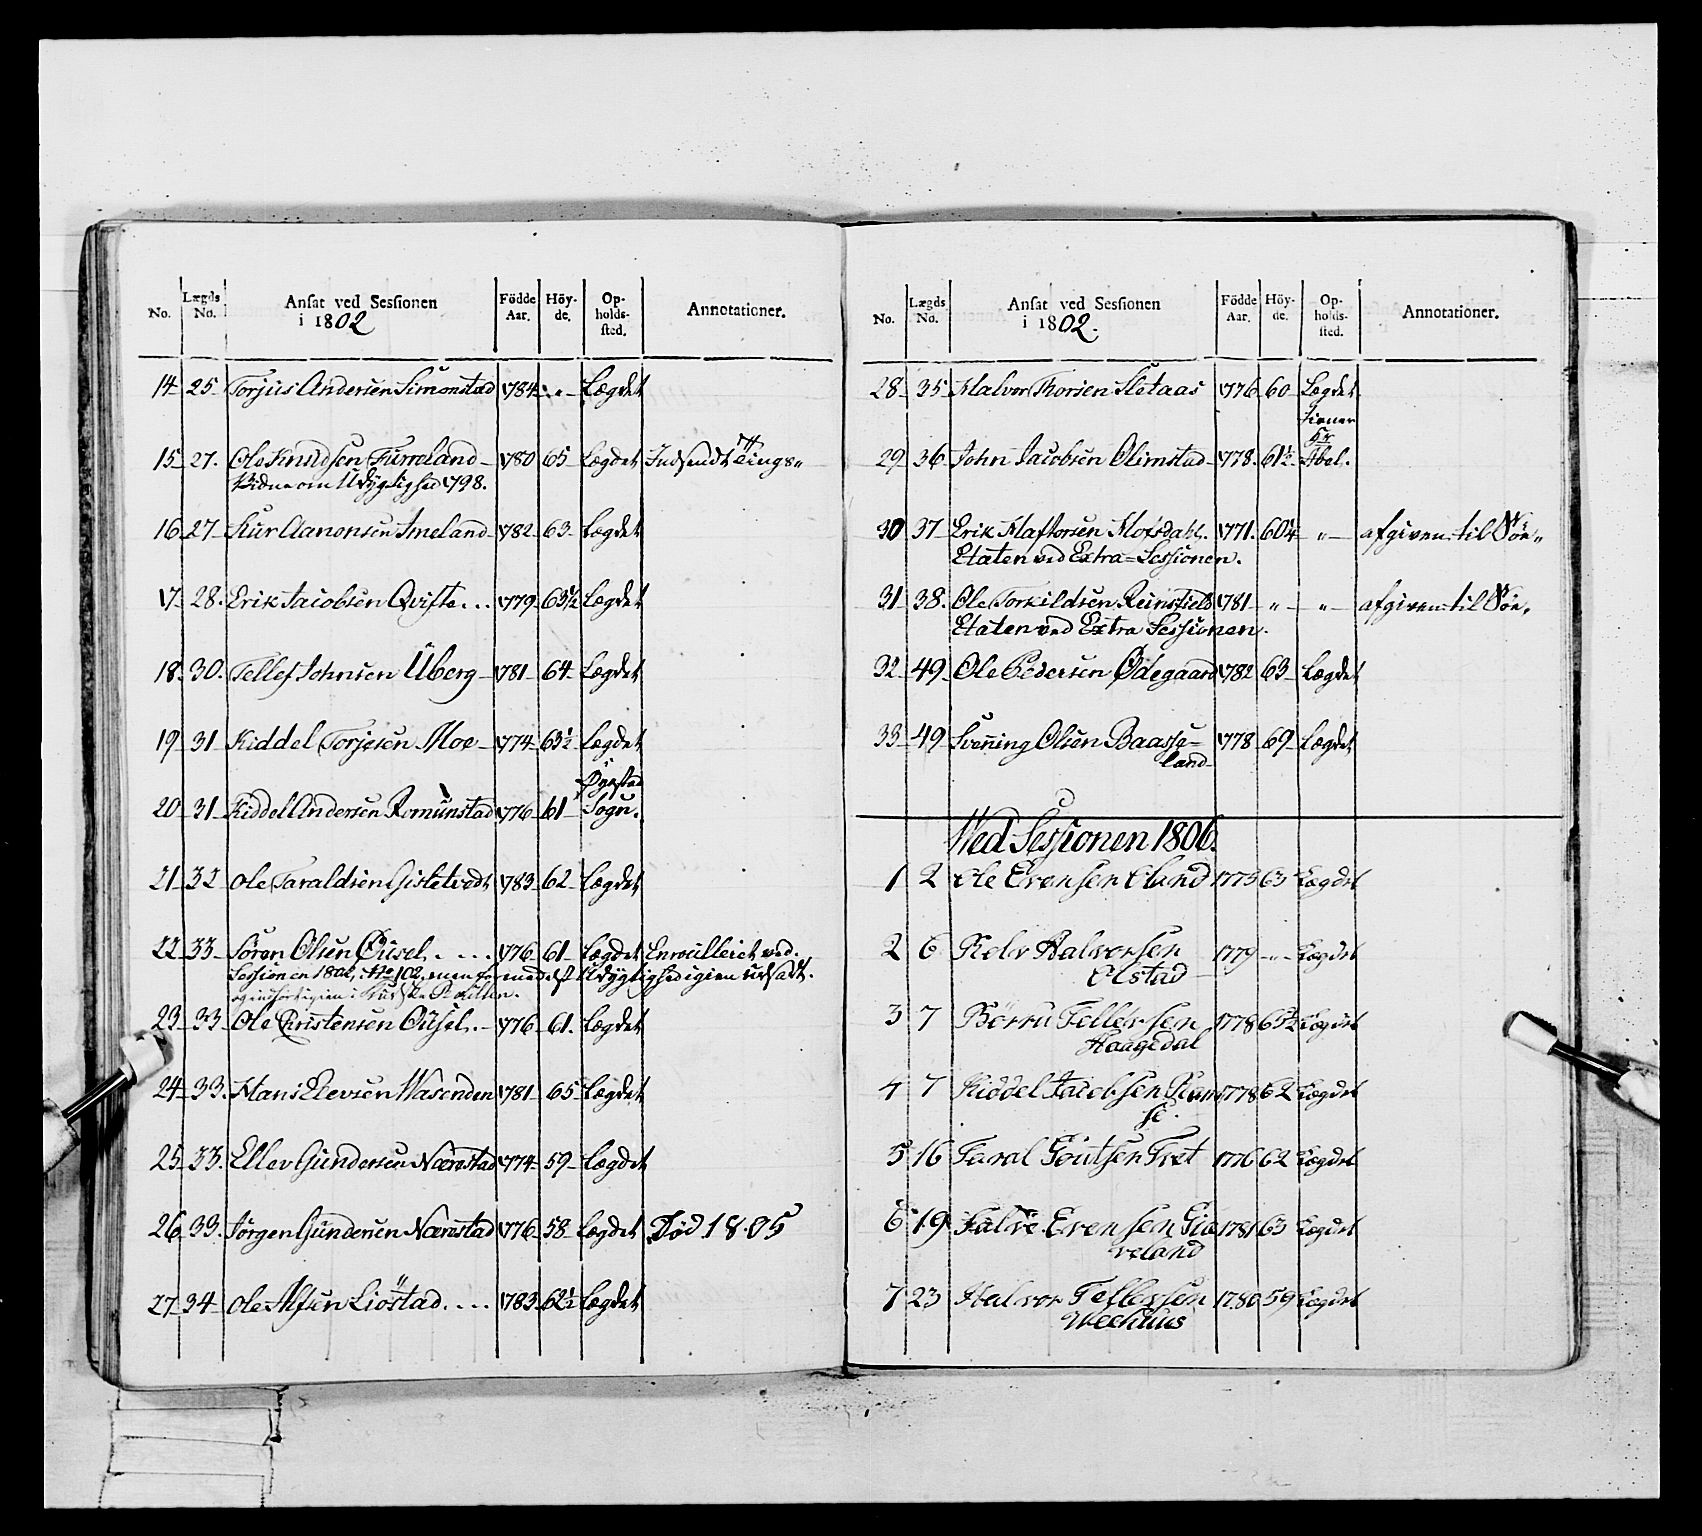 No. Lægds No. Ansat ved Sessionen i 1802 Födde Aar. Höyde. Opholdssted. Annotationer.
14 25 Torjus Andersen Simonstad 1784 „ Lægdet
15 27. Ole Knudsen Furreland 1780 65 Lægdet Indsendt Tings„
Vidne om Udygtighed 1798.
16 27 Aanonsen Imeland 1782 63 Lægdet
17 28. Erik Jacobsen Qviste... 1779 63½ Lægdet
18 30. Tellef Johnsen Uberg 1781 64 Lægdet
19 31 Kiddel Torjesen Moe 1774 63½ Lægdet
20 31 Kiddel Andersen Romunstad 1776 61 Øyestad Sogn.
21 32 Ole Taraldsen Gisletvedt 1783 62 Lægdet
22 33 Sören Olsen Øusel.... 1776 61 Lægdet Enroulleret ved
Sessionen 1801, No 102, men formedelst Udygtighed igien udsadt.
og indført igien i Rullen.
23 33 Ole Christensen Ousel. 1776 61. Lægdet
24 33. Hans Elevsen Wasenden 1781 65 Lægdet
25 33. Ellev Gundersen Nærestad 1774 59 Lægdet
26 33. Jörgen Gundersen Nærestad 1776 58 Lægdet Død 1805
27 34 Ole Alfsen Liöstad.... 1783 62½ Lægdet
No. Lægds No. Ansat ved Sessionen i 1802. Födde Aar. Höyde. Opholdssted. Annotationer.
28 35 Halvor Thorsen Sletaas 1776 60 Lægdet
29 36 John Jacobsen Olimstad 1778. 61½ Abel.
30 37 Erik Haftorsen Mosdahl. 1771. 60¼ „ afgiven til Söe„
Etaten ved Extra=Sessionen.
31 38. Ole Torkildsen Reinsfield 1781 „ „ afgiven til Söe„
Etaten ved Extra Sessionen.
32 49 Ole Pedersen Ødegaard 1782 63 Lægdet
33 49 Svenning Olsen Baasse=
land 1778 69 Lægdet
Ved Sessionen 1806.
1 2 Ole Evensen Oland 1773 63 Lægdet
2 6 Relv Halvorsen
Olstad 1779 „ Lægdet
3 7 Börru Tellevsen
Haagedal 1778 63½ Lægdet
4 7 Kiddel Jacobsen
se. 1778 62 Lægdet
5 16 Taral Goutsen Tvet 1776 62 Lægdet
6 19 Salve Evensen Giæ
veland 1781 63 Lægdet
7 23 Halvor Tellevsen
Weehuus 1780 59 Lægdet